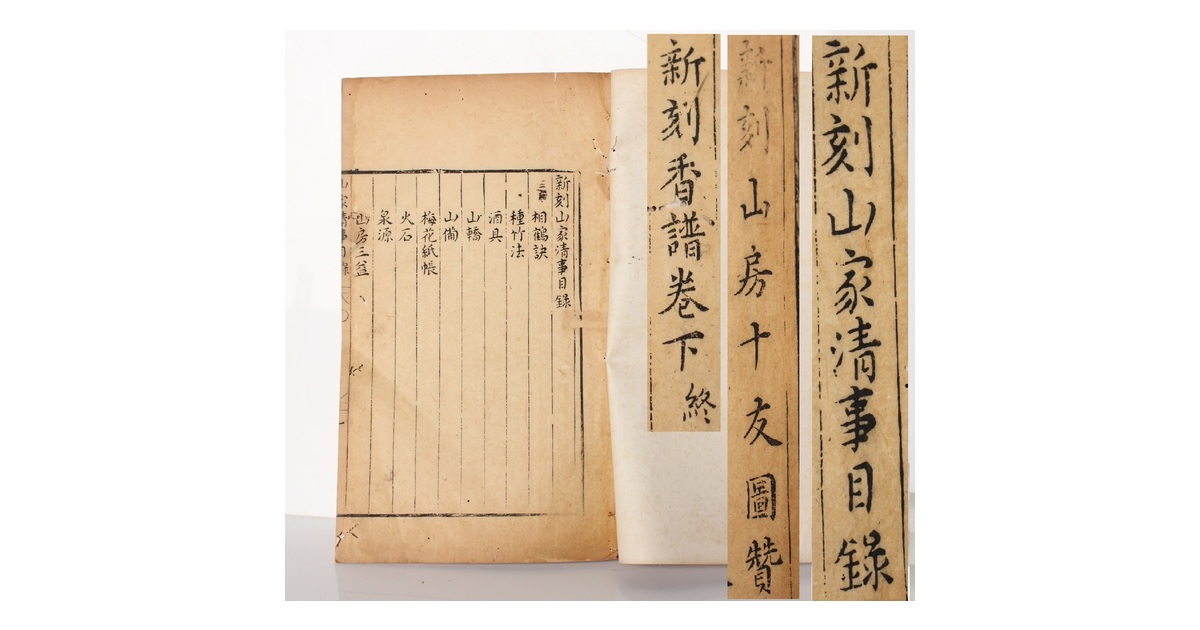 新刻山家清事目錄
新刻山房十友圖贊
新刻香譜卷下 終
新刻山家清事目錄
相鶴訣
種竹法
酒具
山轎
山備
梅花紙帳
火石
泉源
山房三益